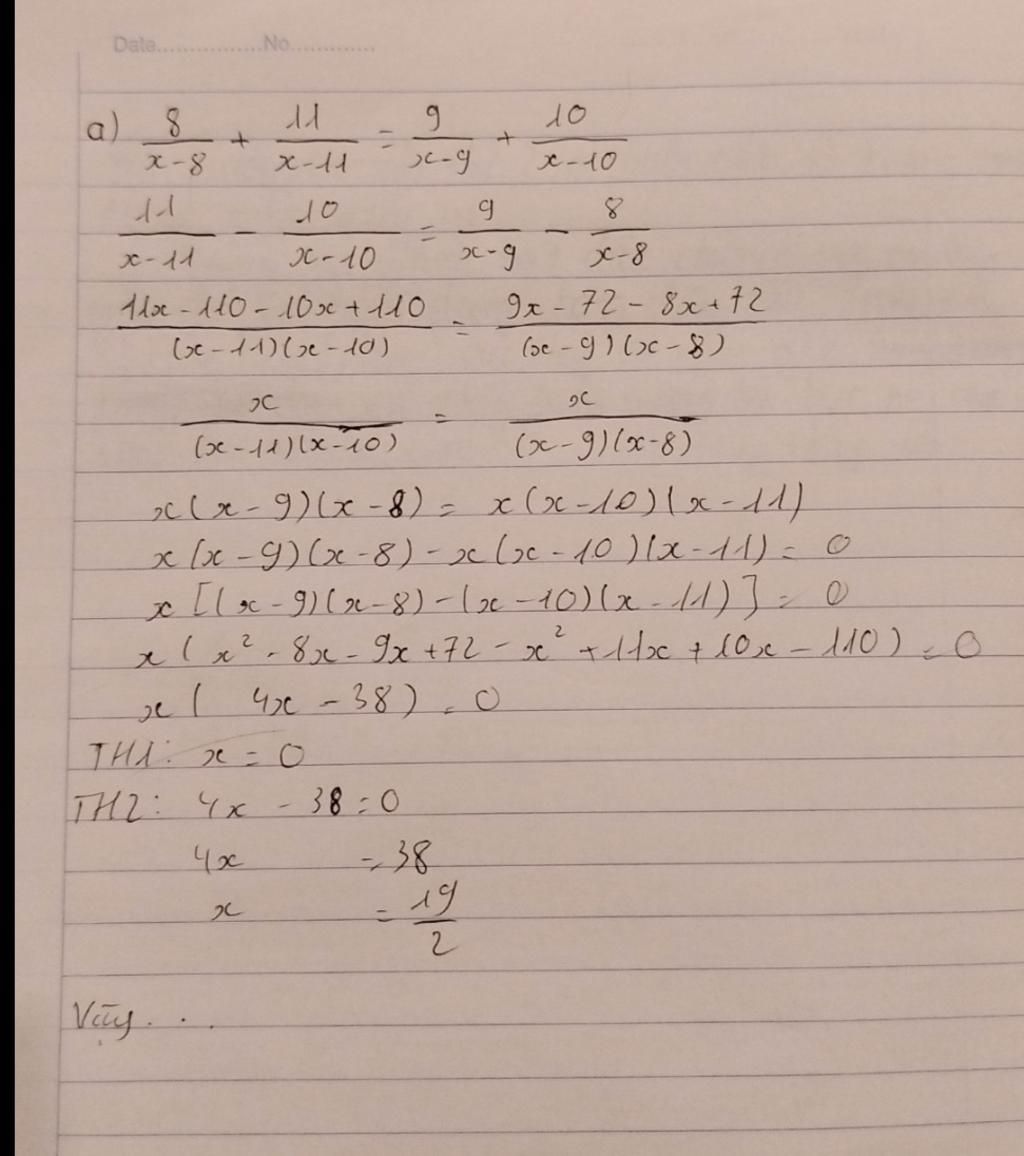 Date................No.............
a) 8/(x-8) + 11/(x-11) = 9/(x-9) + 10/(x-10)
11/(x-11) - 10/(x-10) = 9/(x-9) - 8/(x-8)
(11x - 110 - 10x + 110)/((x-11)(x-10)) = (9x - 72 - 8x + 72)/((x-9)(x-8))
x/((x-11)(x-10)) = x/((x-9)(x-8))
x(x-9)(x-8) = x(x-10)(x-11)
x(x-9)(x-8) - x(x-10)(x-11) = 0
x[(x-9)(x-8) - (x-10)(x-11)] = 0
x(x² - 8x - 9x + 72 - x² + 11x + 10x - 110) = 0
x( 4x - 38) = 0
TH1: x = 0
TH2: 4x - 38 = 0
4x = 38
x = 19/2
Vậy...